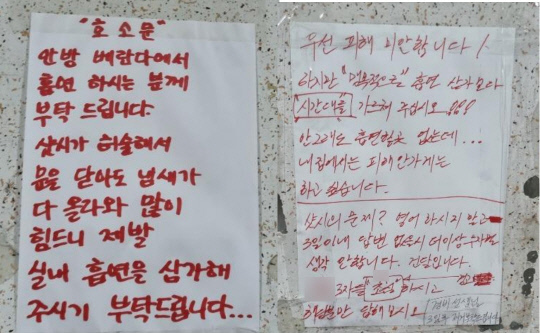 "호소문"
안방 베란다에서
흡연 하시는 분께
부탁 드립니다.
샷시가 허술해서
문을 닫아도 냄새가
다 올라와 많이
힘드니 제발
실내 흡연을 삼가해
주시기 부탁드립니다...
우선 피해 미안합니다!
하지만 "덮목적으로" 흡연 삼가보다
시간대를 가르쳐 주십시오
안그래도 흡연할곳 없는데...
내집에서는 피해안가게는
하고 싶습니다.
샷시의 문제?
3일이내 답변 없으시 더이상
생각 안합니다. 전달입니다.
하시고